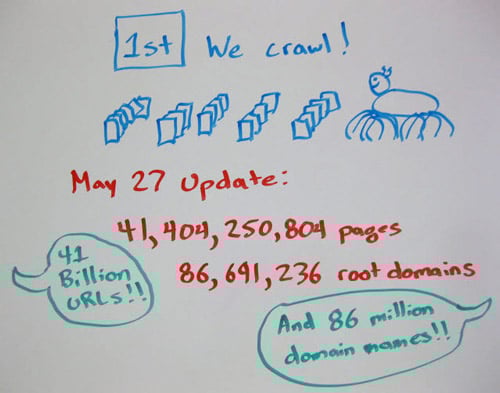 1st We crawl!
May 27 Update:
41,404,250,804 pages
86,691,236 root domains
41
Billion
URLs!!
And 86 million
domain names!!